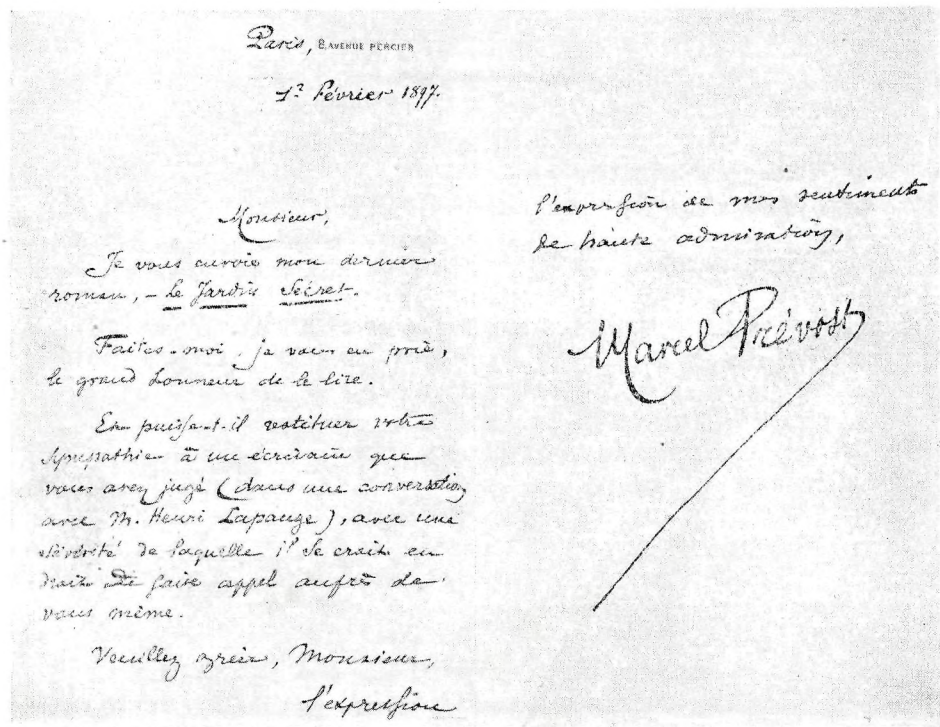 Paris, 8, AVENUE PERCIER
1er Février 1897.
Monsieur,
Je vous envoie mon dernier
roman, – Le Jardin Secret.
Faites-moi, je vous en prie,
le grand honneur de le lire.
puisse-t-il restituer votre
sympathie à un écrivain que
vous avez jugé (dans une conversation
avec M. Henri Lapauze), avec une
sévérité de laquelle il se croit en
droit de faire appel auprès de
vous même.
Veuillez agréer, Monsieur,
l'expression
l'expression de mes sentiments
de haute admiration,
Marcel Prévost